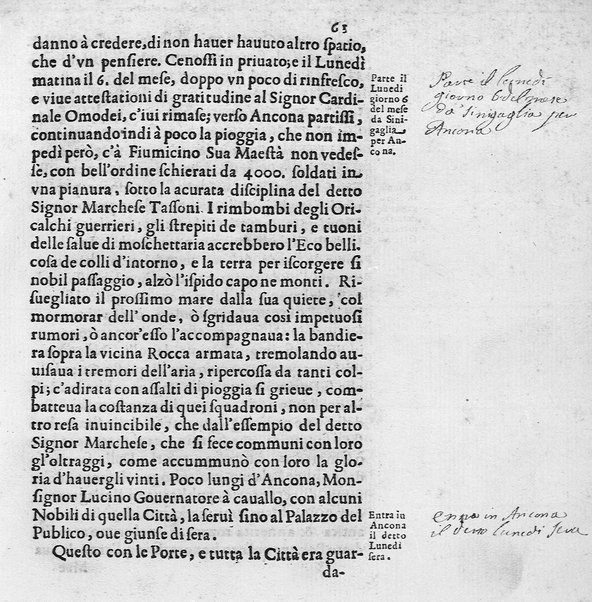 63
danno à credere, di non hauer hauuto altro spatio,
che d'vn pensiere. Cenossi in priuato; e il Lunedì
matina il 6. del mese, doppo vn poco di rinfresco,
e viue attestationi di gratitudine al Signor Cardi-
nale Omodei, c'iui rimase; verso Ancona partissi,
continuando indi à poco la pioggia, che non im-
pedì però, c'à Fiumicino Sua Maestà non vedes-
se, con bell'ordine schierati da 4000. soldati in
vna pianura, sotto la acurata disciplina del detto
Signor Marchese Tassoni. I rimbombi degli Ori-
calchi guerrieri, gli strepiti de tamburi, e tuoni
delle salue di moschettaria accrebbero l'Eco belli-
cosa de colli d'intorno, e la terra per iscorgere sì
nobil passaggio, alzò l'ispido capo ne monti. Ri-
suegliato il prossimo mare dalla sua quiete, 'col
mormorar dell'onde, ò sgridaua così impetuosi
rumori, ò ancor'esso l'accompagnaua: la bandie-
ra sopra la vicina Rocca armata, tremolando au-
uisaua i tremori dell'aria, ripercossa da tanti col-
pi; c'adirata con assalti di pioggia sì grieue, com-
batteua la costanza di quei squadroni, non per al-
tro resa inuincibile, che dall'essempio del detto
Signor Marchese, che si fece communi con loro
gl'oltraggi, come accummunò con loro la glo-
ria d'hauergli vinti. Poco lungi d'Ancona, Mon-
signor Lucino Gouernatore à cauallo, con alcuni
Nobili di quella Città, la seruì sino al Palazzo del
Publico, oue giunse di sera.
Questo con le Porte, e tutta la Città era guar-
da-
Parte il
Luuedì
giorno 6
del mese
da Sini-
gaglia
per An-
cona.
Entra in
Ancona
il detto
Lunedì
sera.
Parte il lunedi
giorno 6 del mese
da Sinigaglia per
Ancona
entra in Ancona
il detto lunedi sera